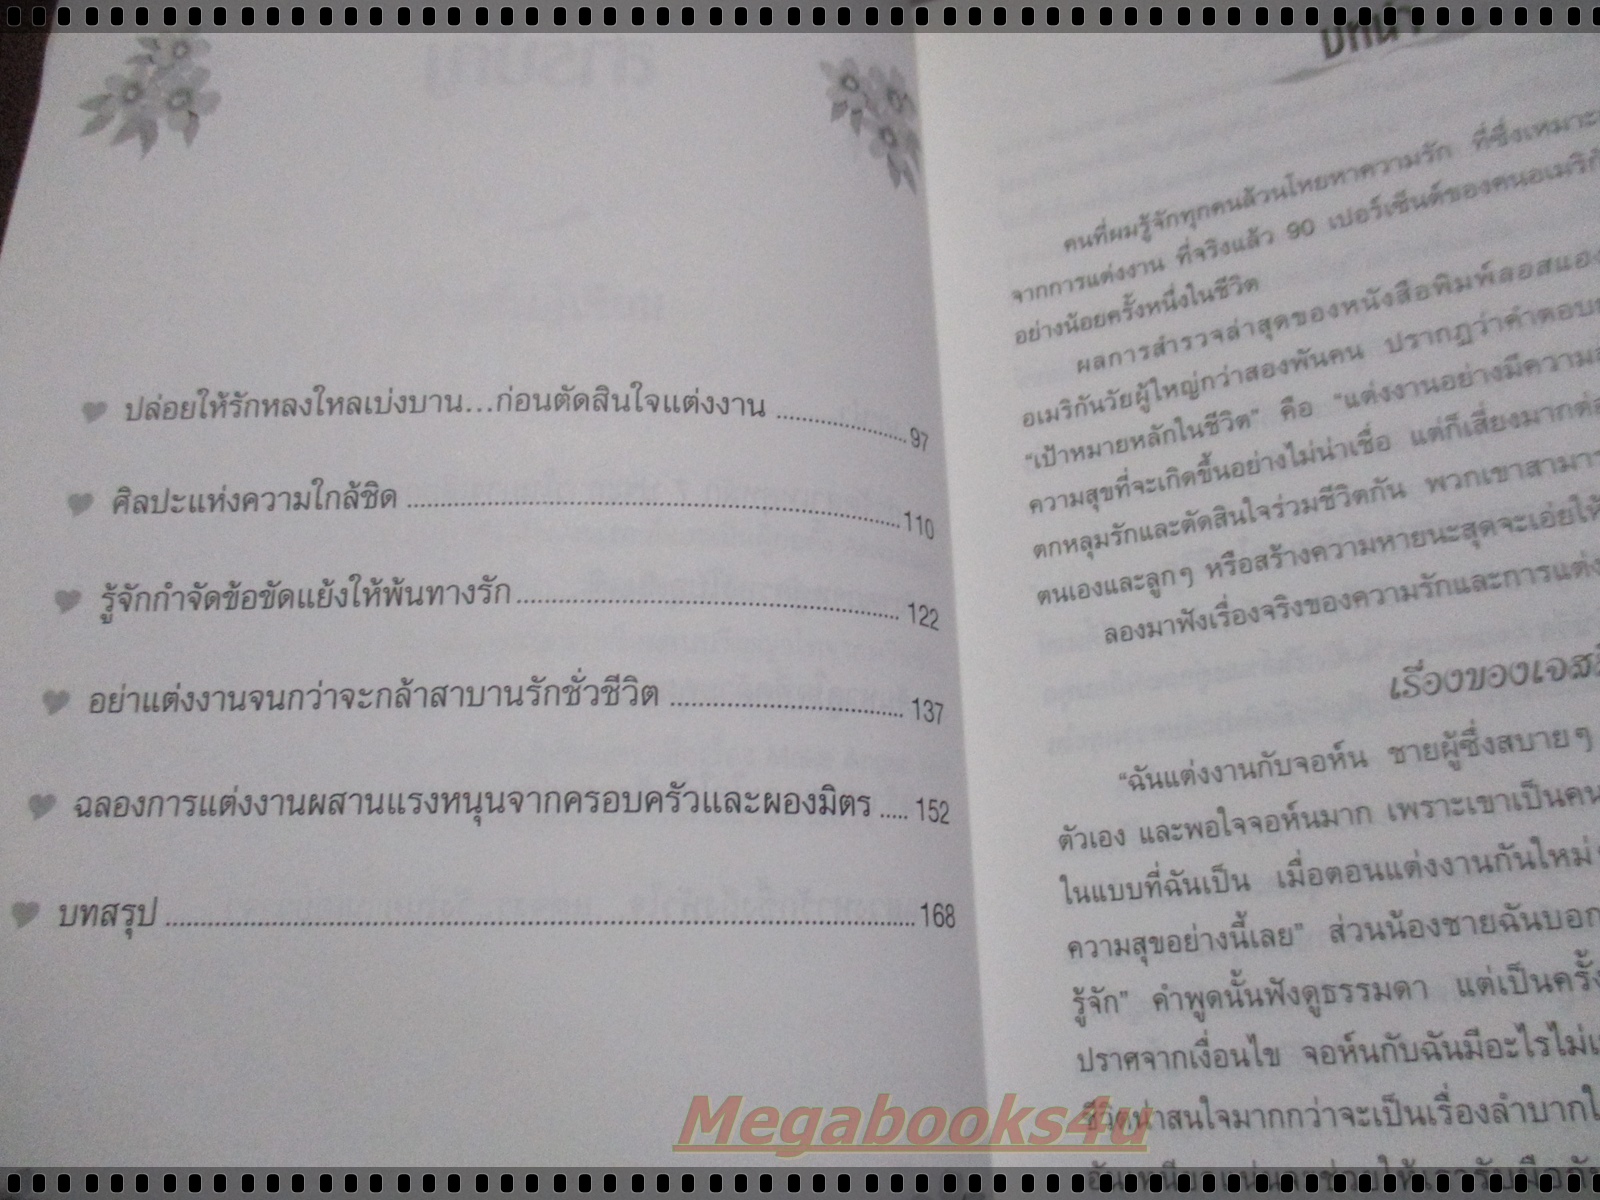 ปล่อยให้รักหลงใหลเบ่งบาน...ก่อนตัดสินใจแต่งงาน 97
ศิลปะแห่งความใกล้ชิด 110
รู้จักกำจัดข้อขัดแย้งให้พ้นทางรัก 122
อย่าแต่งงานจนกว่าจะกล้าสาบานรักชั่วชีวิต 137
ฉลองการแต่งงานผสานแรงหนุนจากครอบครัวและผองมิตร 152
บทสรุป 168
บทนำ
คนที่ผมรู้จักทุกคนล้วนโหยหาความรัก ที่ซึ่งเหมาะ
จากการแต่งงาน ที่จริงแล้ว 90 เปอร์เซ็นต์ของคนอเมริกั
อย่างน้อยครั้งหนึ่งในชีวิต
ผลการสำรวจล่าสุดของหนังสือพิมพ์ลอสแอง
อเมริกันวัยผู้ใหญ่กว่าสองพันคน ปรากฏว่าคำตอบ
“เป้าหมายหลักในชีวิต” คือ “แต่งงานอย่างมีความ
ความสุขที่จะเกิดขึ้นอย่างไม่น่าเชื่อ แต่ก็เสี่ยงมากต่อ
ตกหลุมรักและตัดสินใจร่วมชีวิตกัน พวกเขาสามาร
ตนเองและลูกๆ หรือสร้างความหายนะสุดจะเอ่ยให้
ลองมาฟังเรื่องจริงของความรักและการแต่ง
เรื่องของเจส
“ฉันแต่งงานกับจอห์น ชายผู้ซึ่งสบายๆ
ตัวเอง และพอใจจอห์นมาก เพราะเขาเป็นคน
ในแบบที่ฉันเป็น เมื่อตอนแต่งงานกันใหม่ๆ
ความสุขอย่างนี้เลย” ส่วนน้องชายฉันบอก
รู้จัก” คำพูดนั้นฟังดูธรรมดา แต่เป็นครั้ง
ปราศจากเงื่อนไข จอห์นกับฉันมีอะไรไม่เ
ชีวิตน่าสนใจมากกว่าจะเป็นเรื่องลำบากใ
Megabooks4u